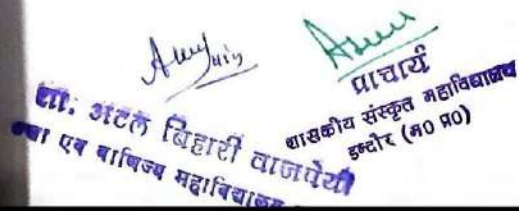 प्राचार्य
शासकीय संस्कृत महाविद्यालय
इन्दौर (म0 प्र0)
शा. अटल बिहारी वाजपेयी
एवं वाणिज्य महाविद्यालय